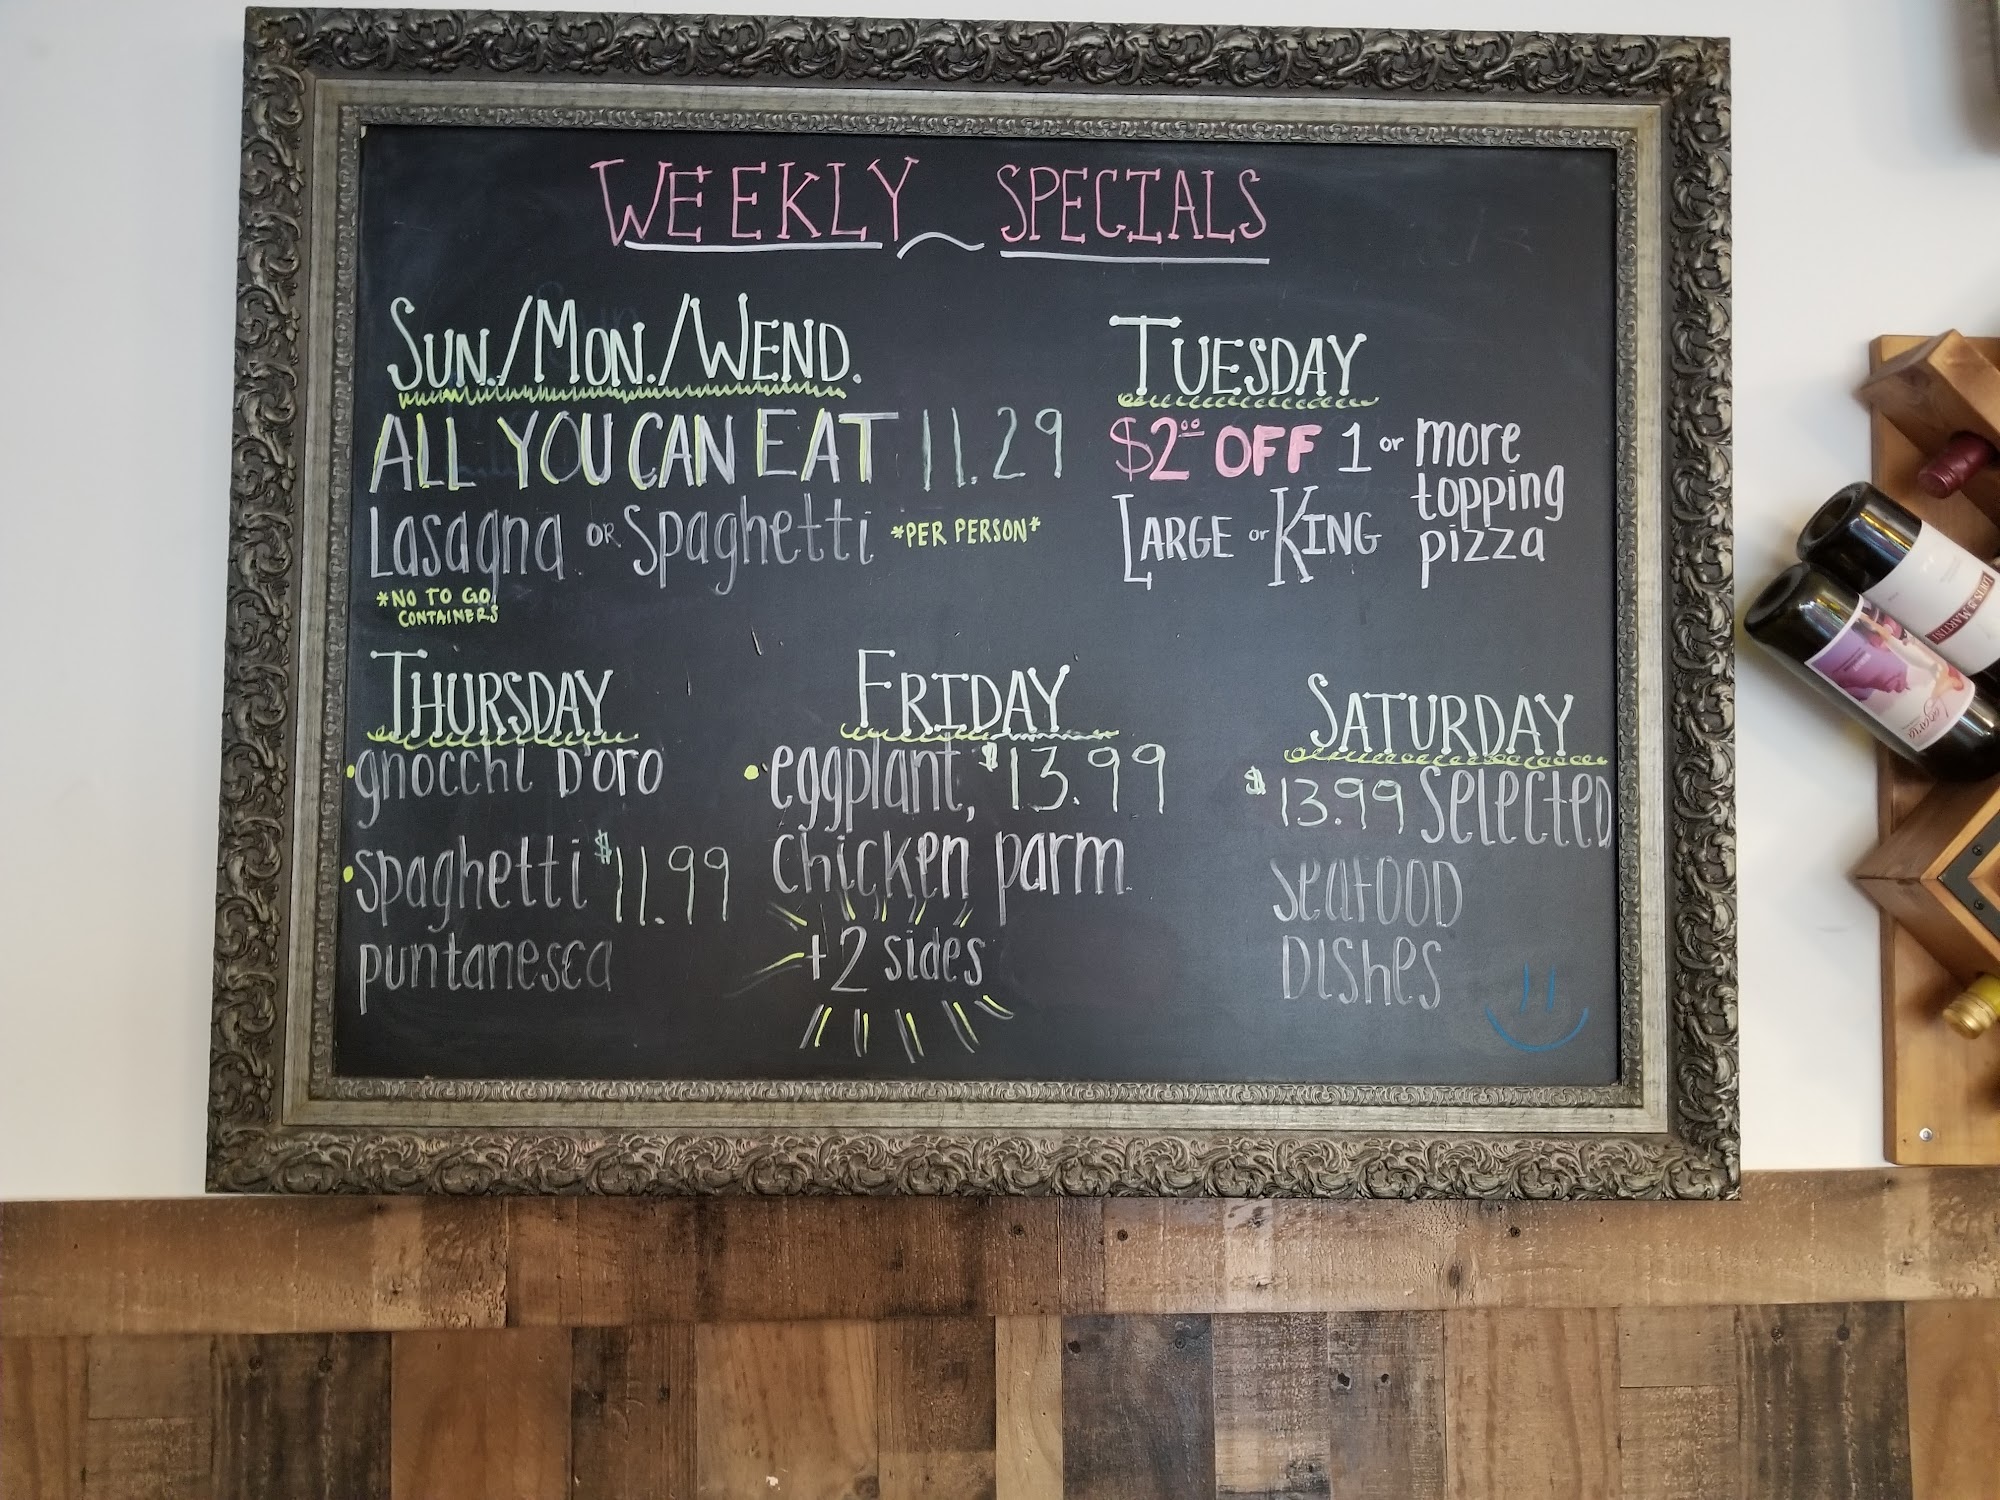 WEEKLY SPECIALS
SUN./MON./WEND.
ALL YOU CAN EAT 11.29
Lasagna OR Spaghetti *PER PERSON*
*NO TO GO
CONTAINERS
TUESDAY
$2.00 OFF 1 or more
topping
LARGE or KING pizza
THURSDAY
• gnocchi D'oro
• spaghetti $11.99
puntanesca
FRIDAY
• eggplant, $13.99
chicken parm
+2 sides
SATURDAY
$13.99 Selected
Seafood
Dishes
LOUIS M. MARTINI